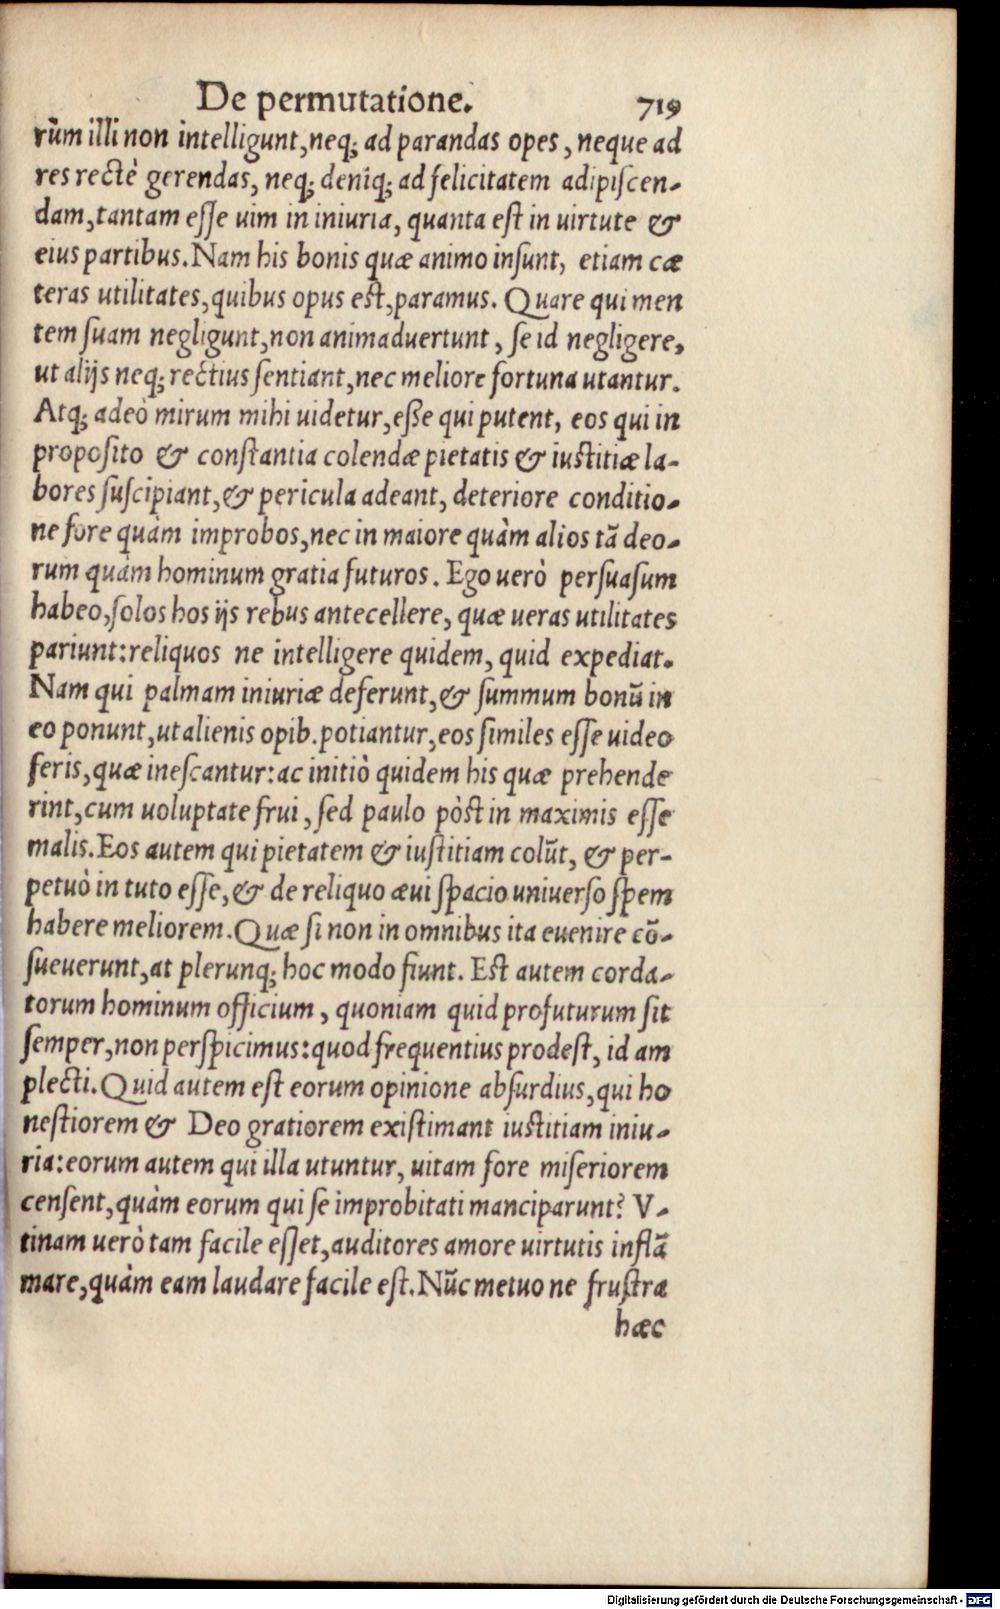 De permutatione. 719
rùm illi non intelligunt, neq; ad parandas opes, neque ad
res rectè gerendas, neq; deniq; ad felicitatem adipiscen-
dam, tantam esse uim in iniuria, quanta est in uirtute &
eius partibus. Nam his bonis quæ animo insunt, etiam cæ
teras utilitates, quibus opus est, paramus. Quare qui men
tem suam negligunt, non animaduertunt, se id negligere,
ut alijs neq; rectius sentiant, nec meliore fortuna utantur.
Atq; adeò mirum mihi uidetur, esse qui putent, eos qui in
proposito & constantia colendæ pietatis & iustitiæ la-
bores suscipiant, & pericula adeant, deteriore conditio-
ne fore quàm improbos, nec in maiore quàm alios tã deo-
rum quàm hominum gratia futuros. Ego uerò persuasum
habeo, solos hos ijs rebus antecellere, quæ ueras utilitates
pariunt: reliquos ne intelligere quidem, quid expediat.
Nam qui palmam iniuriæ deferunt, & summum bonũ in
eo ponunt, ut alienis opib. potiantur, eos similes esse uideo
feris, quæ inescantur: ac initiò quidem his quæ prehende
rint, cum uoluptate frui, sed paulo pòst in maximis esse
malis. Eos autem qui pietatem & iustitiam colũt, & per-
petuò in tuto esse, & de reliquo æui spacio uniuerso spem
habere meliorem. Quæ si non in omnibus ita euenire cõ-
sueuerunt, at plerunq; hoc modo fiunt. Est autem corda-
torum hominum officium, quoniam quid profuturum sit
semper, non perspicimus: quod frequentius prodest, id am
plecti. Quid autem est eorum opinione absurdius, qui ho
nestiorem & Deo gratiorem existimant iustitiam iniu-
ria: eorum autem qui illa utuntur, uitam fore miseriorem
censent, quàm eorum qui se improbitati manciparunt? V-
tinam uerò tam facile esset, auditores amore uirtutis inflã
mare, quàm eam laudare facile est. Nũc metuo ne frustra
hæc
Digitalisierung gefördert durch die Deutsche Forschungsgemeinschaft - DFG